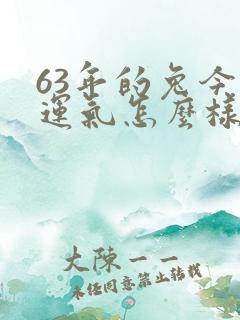 63年的兔今
運氣怎麼樣
大陳一一
未经同意禁止转载